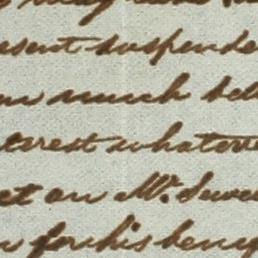 esent suspende
much bett
terest whatev
et on Mr. Swe
for his bene